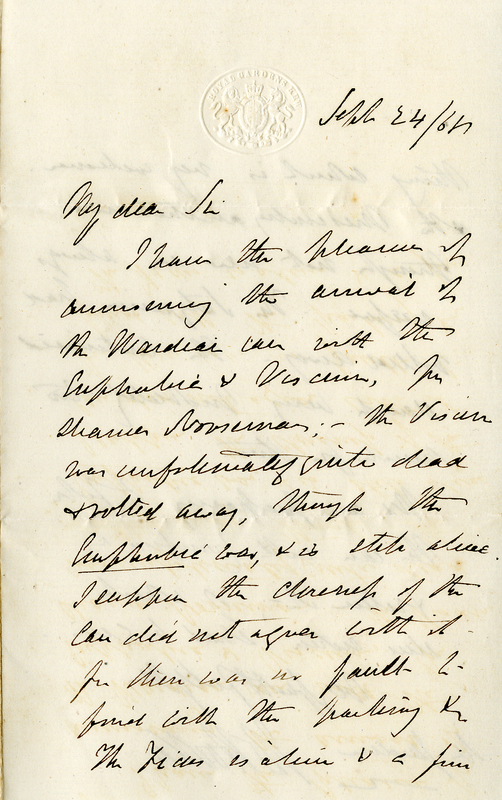 ROYAL GARDENS KEW
Sept 24/68
My dear Sir
I have the pleasure of
announcing the arrival of
the Wardian case with the
Euphorbia & Viscum, per
steamer Norseman; – the Viscum
was unfortunately quite dead
& rotted away, though the
Euphorbia was, & is still alive.
I suppose the closeness of the
Case did not agree with it
for there was no fault to
find with the packing &c
The is alive & a fine